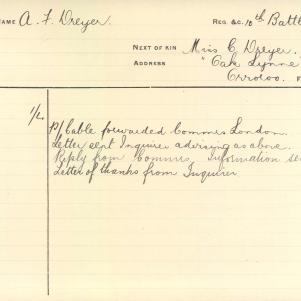 NAME A. F. Dreyer.
REG. &C. 10th Batt
NEXT OF KIN Miss C. Dreyer.
ADDRESS "Oak Lynne"
Orroroo.
1/2.
P/Cable forwarded Commrs London.
Letter sent Inquirer advising as above.
Reply from Commrs. Information se
Letter of thanks from Inquirer